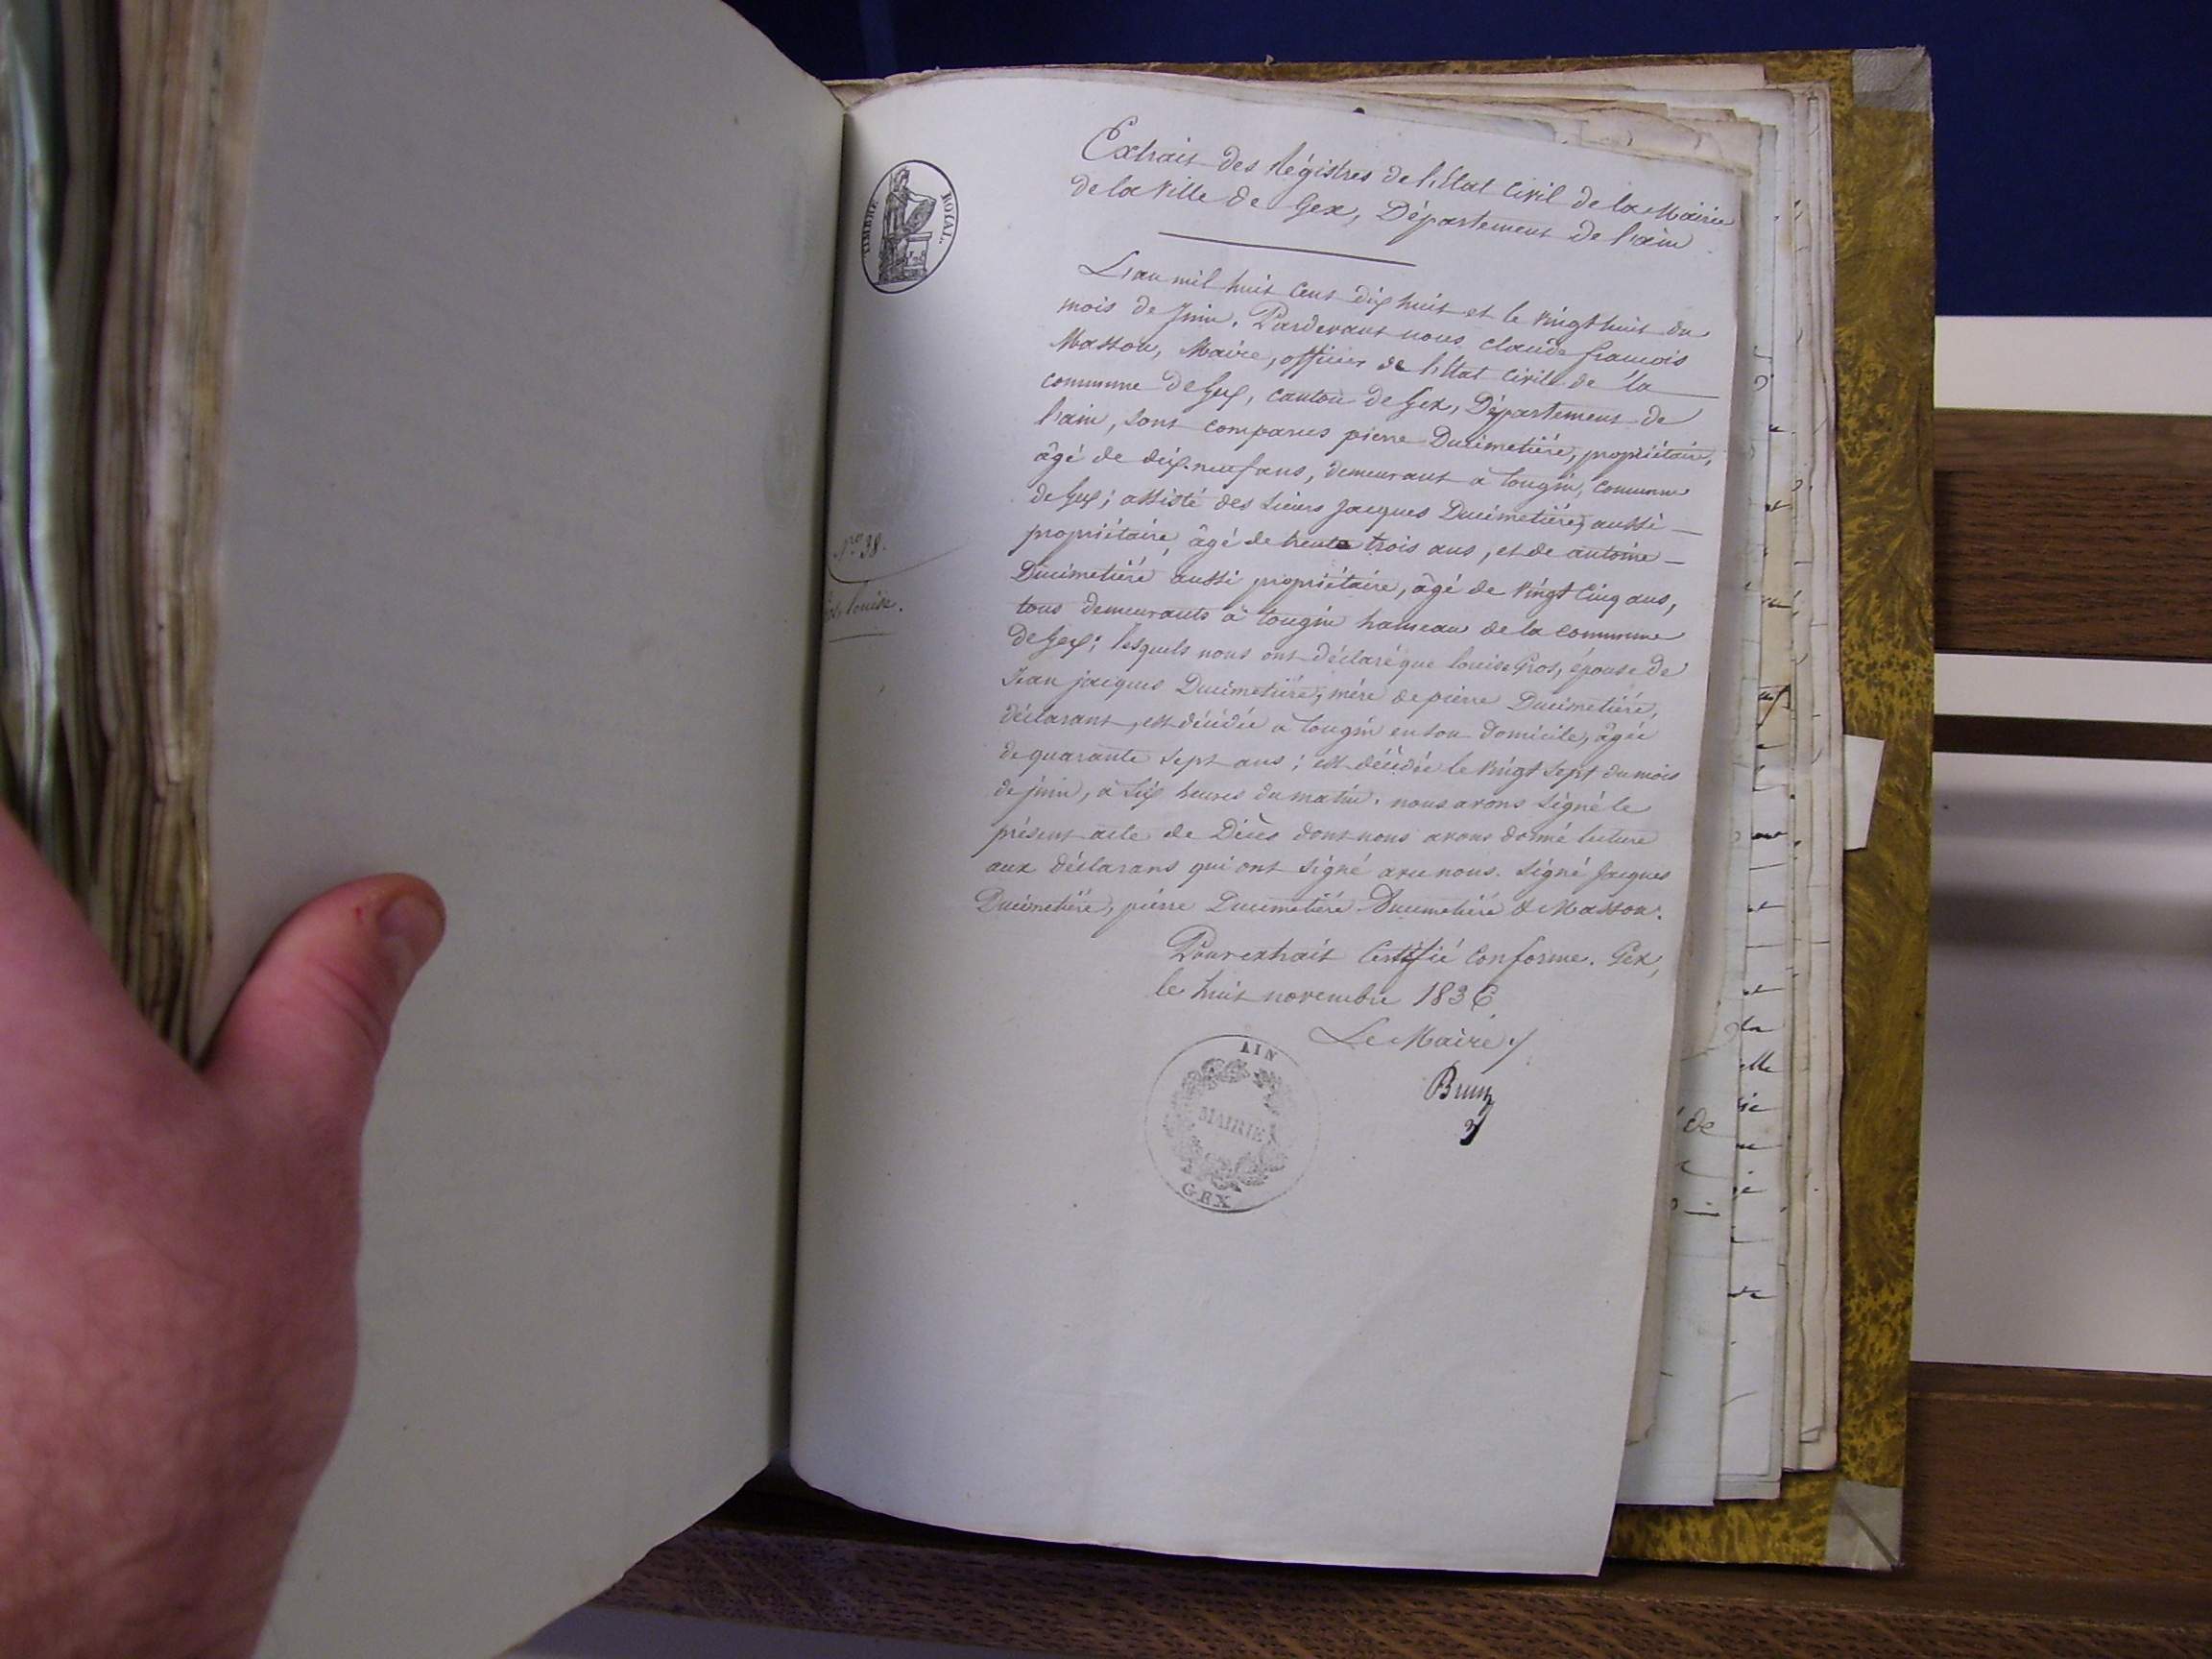 TIMBRE ROYAL
Extrait des Régistres de l'Etat Civil de la Mairie
de la Ville de Gex, Département de l'ain
L'an mil huit Cent dix huit et le vingt huit du
mois de Juin. Pardevant nous Claude françois
Masson, Maire, officier de l'Etat Civil de la
commune de Gex, canton de Gex, Département de
l'ain, sont comparus pierre Ducimetière, propriétaire,
âgé de dix-neuf ans, demeurant à tougin, Commune
de Gex; assisté des sieurs Jacques Ducimetière, aussi
propriétaire, âgé de trente trois ans, et de antoine
Ducimetière aussi propriétaire, âgé de vingt Cinq ans,
tous demeurants à tougin hameau de la commune
de Gex; lesquels nous ont déclaré que louise Gros, épouse de
Jean jacques Ducimetière, mère de pierre Ducimetière,
déclarant, est décédée à tougin en son domicile, âgée
de quarante sept ans; est décédée le vingt sept du mois
de juin, à six heures du matin. nous avons signé le
présent acte de Décès dont nous avons donné lecture
aux déclarans qui ont signé avec nous. signé Jacques
Ducimetière, pierre Ducimetière Ducimetière & Masson.
N° 38.
louise.
Pour extrait Certifié Conforme. Gex,
le huit novembre 1836
Le Maire
Brun
AIN
MAIRIE
GEX